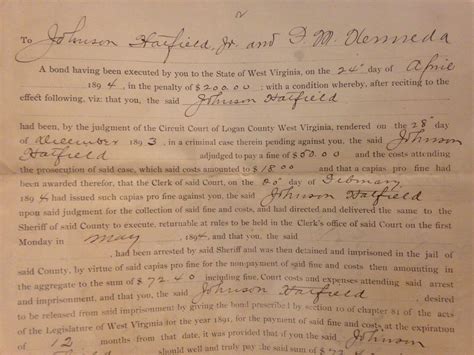 To Johnson Hatfield, Jr. and F. M. Kenneda
A bond having been executed by you to the State of West Virginia, on the 24" day of April
1894, in the penalty of $200.00: with a condition whereby, after reciting to the
effect following, viz: that you, the said Johnson Hatfield
had been, by the judgment of the Circuit Court of Logan County West Virginia, rendered on the 28" day
of December 1893, in a criminal case therein pending against you, the said Johnson
Hatfield adjudged to pay a fine of $50.00 and the costs attending
the prosecution of said case, which said costs amounted to $18.00 and that a capias pro fine having
been awarded therefor, that the Clerk of said Court, on the day of Febuary
1894 had issued such capias pro fine against you, the said Johnson Hatfield
upon said judgment for the collection of said fine and costs, and had directed and delivered the same to the
Sheriff of said County to execute, returnable at rules to be held in the Clerk's office of said Court on the first
Monday in May 1894, and that you, the said
had been arrested by said Sheriff and was then detained and imprisoned in the jail of
said County, by virtue of said capias pro fine for the non-payment of said fine and costs then amounting in
the aggregate to the sum of $72.40 including fine, Court costs and expenses attending said arrest
and imprisonment, and that you, the said Johnson Hatfield, desired
to be released from said imprisonment by giving the bond prescribed by section 10 of chapter 81 of the acts
of the Legislature of West Virginia for the year 1891, for the payment of said fine and costs at the expiration
of 12 months from that date, it was provided that if you the said Johnson
should well and truly pay the said sum of